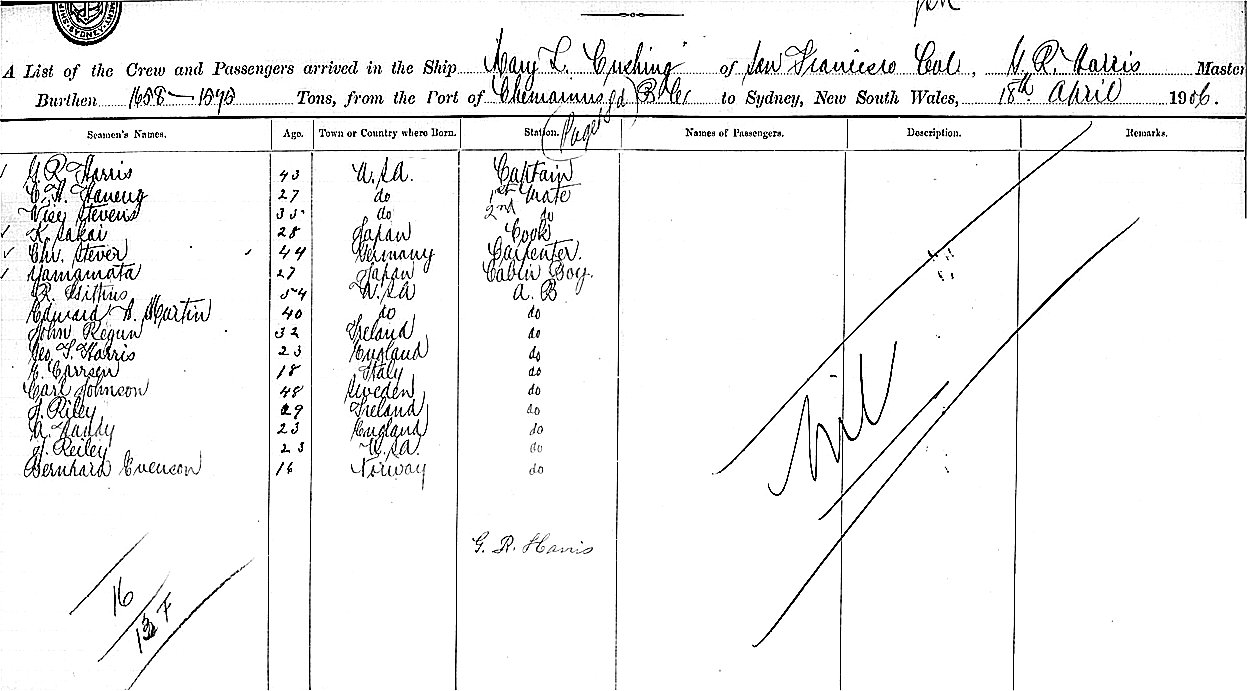 A List of the Crew and Passengers arrived in the Ship Mary L. Cushing of San Francisco Cal, G. R. Harris Master
Burthen 1658 - 1575 Tons, from the Port of Chemainus B. C. to Sydney, New South Wales, 18th April 1906.
Seamen's Names. Age. Town or Country where Born. Station. Names of Passengers. Description. Remarks.
G. R. Harris 43 U.S.A. Captain
C. A. 27 do 1st Mate
Stevens 35 do 2nd do
K. Sakai 28 Japan Cook
Chr. Stever 44 Germany Carpenter.
Yamamata 27 Japan Cabin Boy.
R. 54 U.S.A A. B
Edward A. Martin 40 do do
John Regan 32 Ireland do
Geo. F. Harris 23 England do
E. 18 Italy do
Carl Johnson 48 Sweden do
J. Riley 29 Ireland do
A. Handy 23 England do
J. Reiley 23 U.S.A. do
Bernhard Evenson 16 Norway do
Nil
G. R. Harris
16